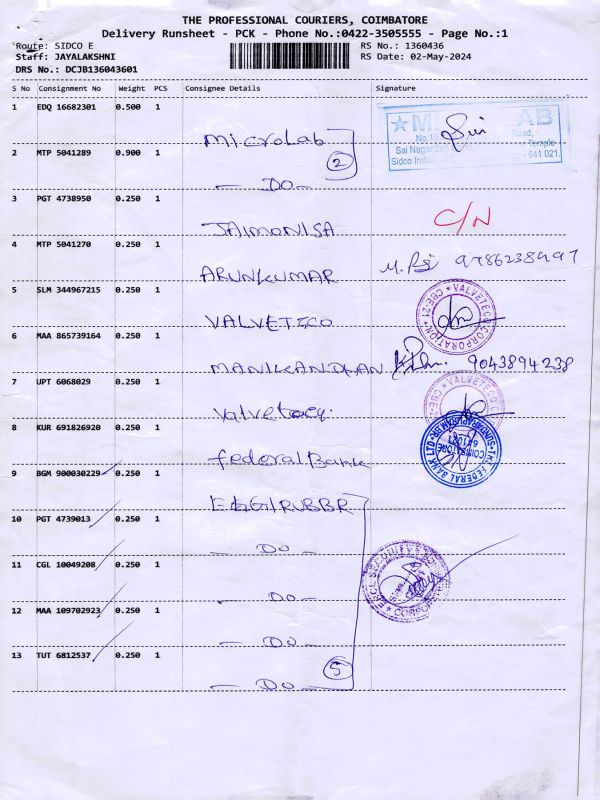 THE PROFESSIONAL COURIERS, COIMBATORE
Delivery Runsheet - PCK - Phone No.:0422-3505555 - Page No.:1
Route: SIDCO E RS No.: 1360436
Staff: JAYALAKSHNI RS Date: 02-May-2024
DRS No.: DCJB136043601
S No Consignment No Weight PCS Consignee Details Signature
1 EDQ 16682301 0.500 1
microLab
2 MTP 5041289 0.900 1
2
- DO -
3 PGT 4738950 0.250 1
JAIMONISA C/N
4 MTP 5041270 0.250 1
ARUNKUMAR
5 SLM 344967215 0.250 1
VALVETECO
6 MAA 865739164 0.250 1
MANIKANDHAN 9043894238
7 UPT 6068029 0.250 1
8 KUR 691826920 0.250 1
federal Bank
9 BGM 900030229 0.250 1
10 PGT 4739013 0.250 1
- DO -
11 CGL 10049208 0.250 1
- DO -
12 MAA 109702923 0.250 1
- DO -
13 TUT 6812537 0.250 1
5
- DO -
LAB
Road,
Sai Nagar
Temple
Sidco Indu
- 641 021.
VALVETECO CORPORATION * CBE-21 *
VALVETECO
CBE-21
FEDERAL BANK LTD
COIMBATORE
641021
SECURITY